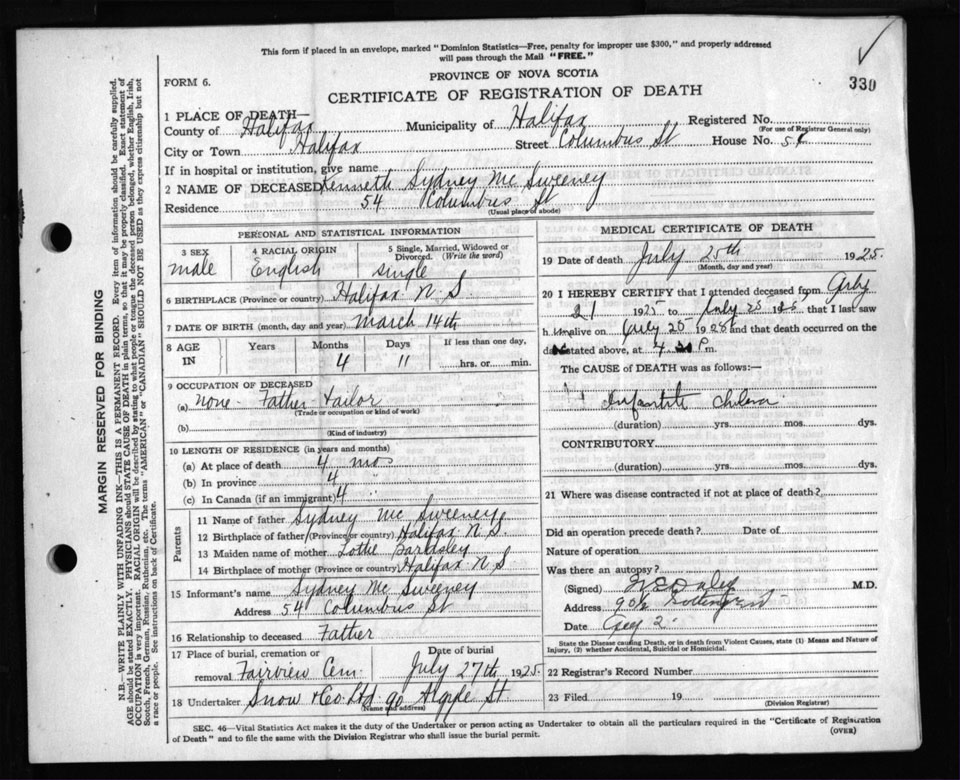 This form if placed in an envelope, marked "Dominion Statistics—Free, penalty for improper use $300," and properly addressed
will pass through the Mail "FREE."
PROVINCE OF NOVA SCOTIA
FORM 6.
330
CERTIFICATE OF REGISTRATION OF DEATH
1 PLACE OF DEATH—
County of Halifax Municipality of Halifax Registered No.
(For use of Registrar General only)
City or Town Halifax Street Columbus St House No. 54
If in hospital or institution, give name
2 NAME OF DECEASED Kenneth Sydney Mc Sweeney
Residence 54 Columbus St
(Usual place of abode)
PERSONAL AND STATISTICAL INFORMATION
3 SEX 4 RACIAL ORIGIN 5 Single, Married, Widowed or
Divorced. (Write the word)
male English single
6 BIRTHPLACE (Province or country) Halifax N.S.
7 DATE OF BIRTH (month, day and year) March 14th
8 AGE Years Months Days If less than one day,
IN 4 11 hrs. or min.
9 OCCUPATION OF DECEASED
(a) none Father Tailor
(Trade or occupation or kind of work)
(b)
(Kind of industry)
10 LENGTH OF RESIDENCE (in years and months)
(a) At place of death 4 mos
(b) In province 4 "
(c) In Canada (if an immigrant) 4
Parents
11 Name of father Sydney Mc Sweeney
12 Birthplace of father (Province or country) Halifax N.S.
13 Maiden name of mother Lottie Bardsley
14 Birthplace of mother (Province or country) Halifax N S
15 Informant's name Sydney Mc Sweeney
Address 54 Columbus St
16 Relationship to deceased Father
17 Place of burial, cremation or Date of burial
removal Fairview Cem July 27th 1925
18 Undertaker Snow & Co. Ltd. 90 Argyle St
(Name and address)
MEDICAL CERTIFICATE OF DEATH
19 Date of death July 25th 1925.
(Month, day and year)
20 I HEREBY CERTIFY that I attended deceased from July
21 1925 to July 25 1925, that I last saw
h alive on July 25 1925 and that death occurred on the
date stated above, at 4.30 P m.
The CAUSE of DEATH was as follows:—
Infantile Cholera
(duration) yrs. mos. dys.
CONTRIBUTORY
(duration) yrs. mos. dys.
21 Where was disease contracted if not at place of death?
Did an operation precede death? Date of
Nature of operation
Was there an autopsy?
(Signed) M.D.
Address
Date
State the Disease causing Death, or in death from Violent Causes, state (1) Means and Nature of
Injury, (2) whether Accidental, Suicidal or Homicidal.
22 Registrar's Record Number
23 Filed 19
(Division Registrar)
SEC. 46—Vital Statistics Act makes it the duty of the Undertaker or person acting as Undertaker to obtain all the particulars required in the "Certificate of Registration
of Death" and to file the same with the Division Registrar who shall issue the burial permit.
(OVER)
MARGIN RESERVED FOR BINDING
N.B.—WRITE PLAINLY WITH UNFADING INK—THIS IS A PERMANENT RECORD. Every item of information should be carefully supplied.
AGE should be stated EXACTLY. PHYSICIANS should STATE CAUSE OF DEATH in plain terms, so that it may be properly classified. Exact statement of
OCCUPATION is very important. RACIAL ORIGIN will be described by stating to what people or tongue the deceased person belonged, whether English, Irish,
Scotch, French, German, Russian, Ruthenian, etc. The terms "AMERICAN" or "CANADIAN" SHOULD NOT BE USED as they express citizenship but not
a race or people. See instructions on back of Certificate.